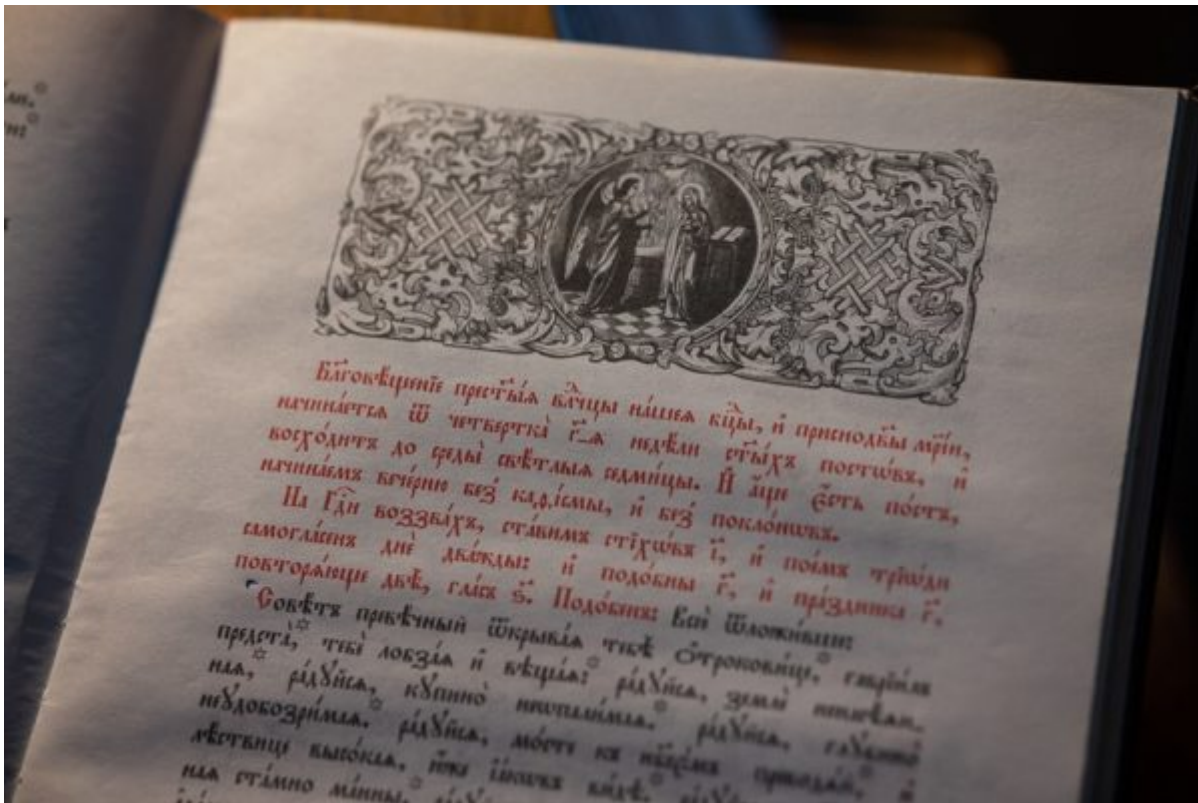 Бл҃говѣ́щенїе прест҃ы́ѧ вл҃чцы на́шеѧ бц҃ы, и҆ приснод҃вы мр҃і́и,
начина́етсѧ ѿ четвертка̀ г҃_ѧ недѣ́ли ст҃ы́хъ посто́въ, и҆
восхо́дитъ до среды̀ свѣ́тлыѧ седми́цы. И҆ а҆́ще є҆́сть по́стъ,
начина́емъ вече́рню без̾ каѳі́смы, и҆ без̾ покло́нѡвъ.
На Гд҇и воззва́хъ, ста́вимъ стїхѡ́въ і҃, и҆ пое́мъ трїѡ́ди
самогла́сенъ днѐ два́жды: и҆ подѡ́бны г҃, и҆ пра́здника г҃,
повторѧ́юще двѣ̀, гла́съ ѕ҃. Подо́бенъ: Всѐ ѿложи́вше:
Совѣ́тъ превѣ́чный ѿкрыва́ѧ тебѣ̀ ѻ҆трокови́це, гаврїи́лъ
предста̀, тебѐ лобза́ѧ и҆ вѣща́ѧ: ра́дꙋйсѧ, землѐ ненасѣ́ѧн_
наѧ, ра́дꙋйсѧ, кꙋпино̀ неѡпали́маѧ. ра́дꙋйсѧ, глꙋбино̀
неꙋдобозри́маѧ. ра́дꙋйсѧ, мо́сте къ нб҃се́мъ приводѧ́й, и҆
лѣ́ствице высо́каѧ, ю҆́же і҆а́кѡвъ ви́дѣ.
наѧ ста́мно ма́нны.